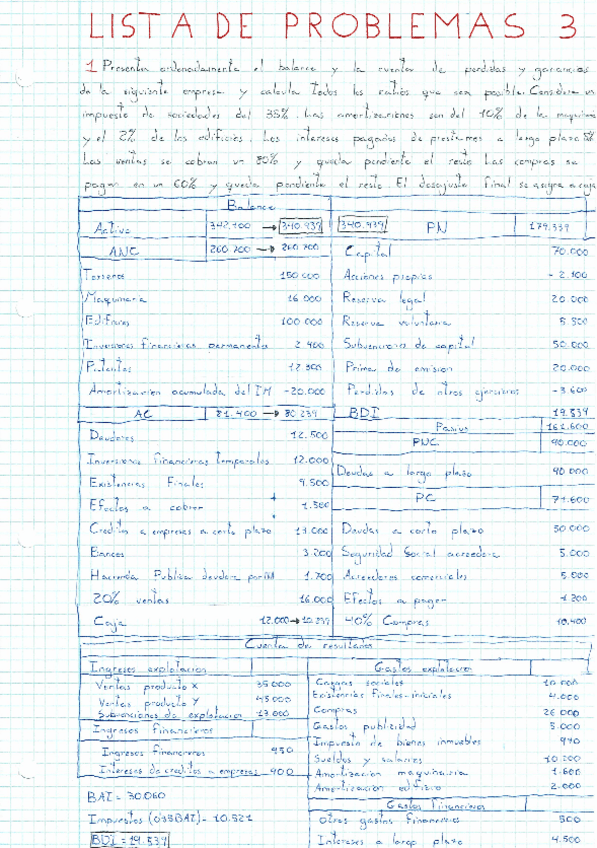 LISTA DE PROBLEMAS 3
1 Presenta ordenadamente el balance y la cuenta de perdidas y ganancias
de la siguiente empresa y calcula todos los ratios que sea posible. Considera un
impuesto de sociedades del 35%. Las amortizaciones son del 10% de la maquinaria
y el 2% de los edificios. Los intereses pagados de prestamos a largo plazo 5%
Las ventas se cobran un 80% y queda pendiente el resto Las compras se
pagan en un 60% y queda pendiente el resto. El desajuste final se asigna a caja
Balance
Activo 342.100 → 340.939 340.939 PN 179.339
ANC 260 700 → 260 700 Capital 70.000
Terrenos 150 000 Acciones propias - 2.100
Maquinaria 16 000 Reserva legal 20 000
Edificios 100 000 Reserva voluntaria 5.500
Inversiones financieras permanentes 2 400 Subvenciones de capital 50.000
Patentes 12 300 Prima de emision 20.000
Amortizacion acumulada del IM -20.000 Perdidas de otros ejercicios -3.600
AC 81.400 → 80 239 BDI 19.539
Pasivo 161.600
Deudores 12.500 PNC 90.000
Inversiones financieras temporales 12.000
Existencias Finales 9.500 Deudas a largo plazo 90 000
Efectos a cobrar 1.500 PC 71.600
Creditos a empresas a corto plazo 13 000 Deudas a corto plazo 50 000
Bancos 3 200 Seguridad Social acreedora 5.000
Hacienda Publica deudora 1.700 Acreedores comerciales 5.000
20% ventas 16.000 Efectos a pagar 1 200
Caja 12.000 → 10.839 40% Compras 10.400
Cuenta de resultados
Ingresos explotacion Gastos explotacion
Ventas producto X 35 000 Cargas sociales 10.000
Ventas producto Y 45 000 Existencias finales-iniciales 4.000
Subvenciones de explotacion 13 000 Compras 26 000
Ingresos Financieros Gastos publicidad 5.000
Ingresos financieros 950 Impuesto de bienes inmuebles 990
Intereses de creditos a empresas 900 Sueldos y salarios
Amortizacion maquinaria 1.600
BAI = 30.060 Amortizacion edificio 2.000
Gastos financieros
Impuestos (0'35BAI) = 10.521 Otros gastos financieros 500
BDI = 19.539 Intereses a largo plazo 4.500